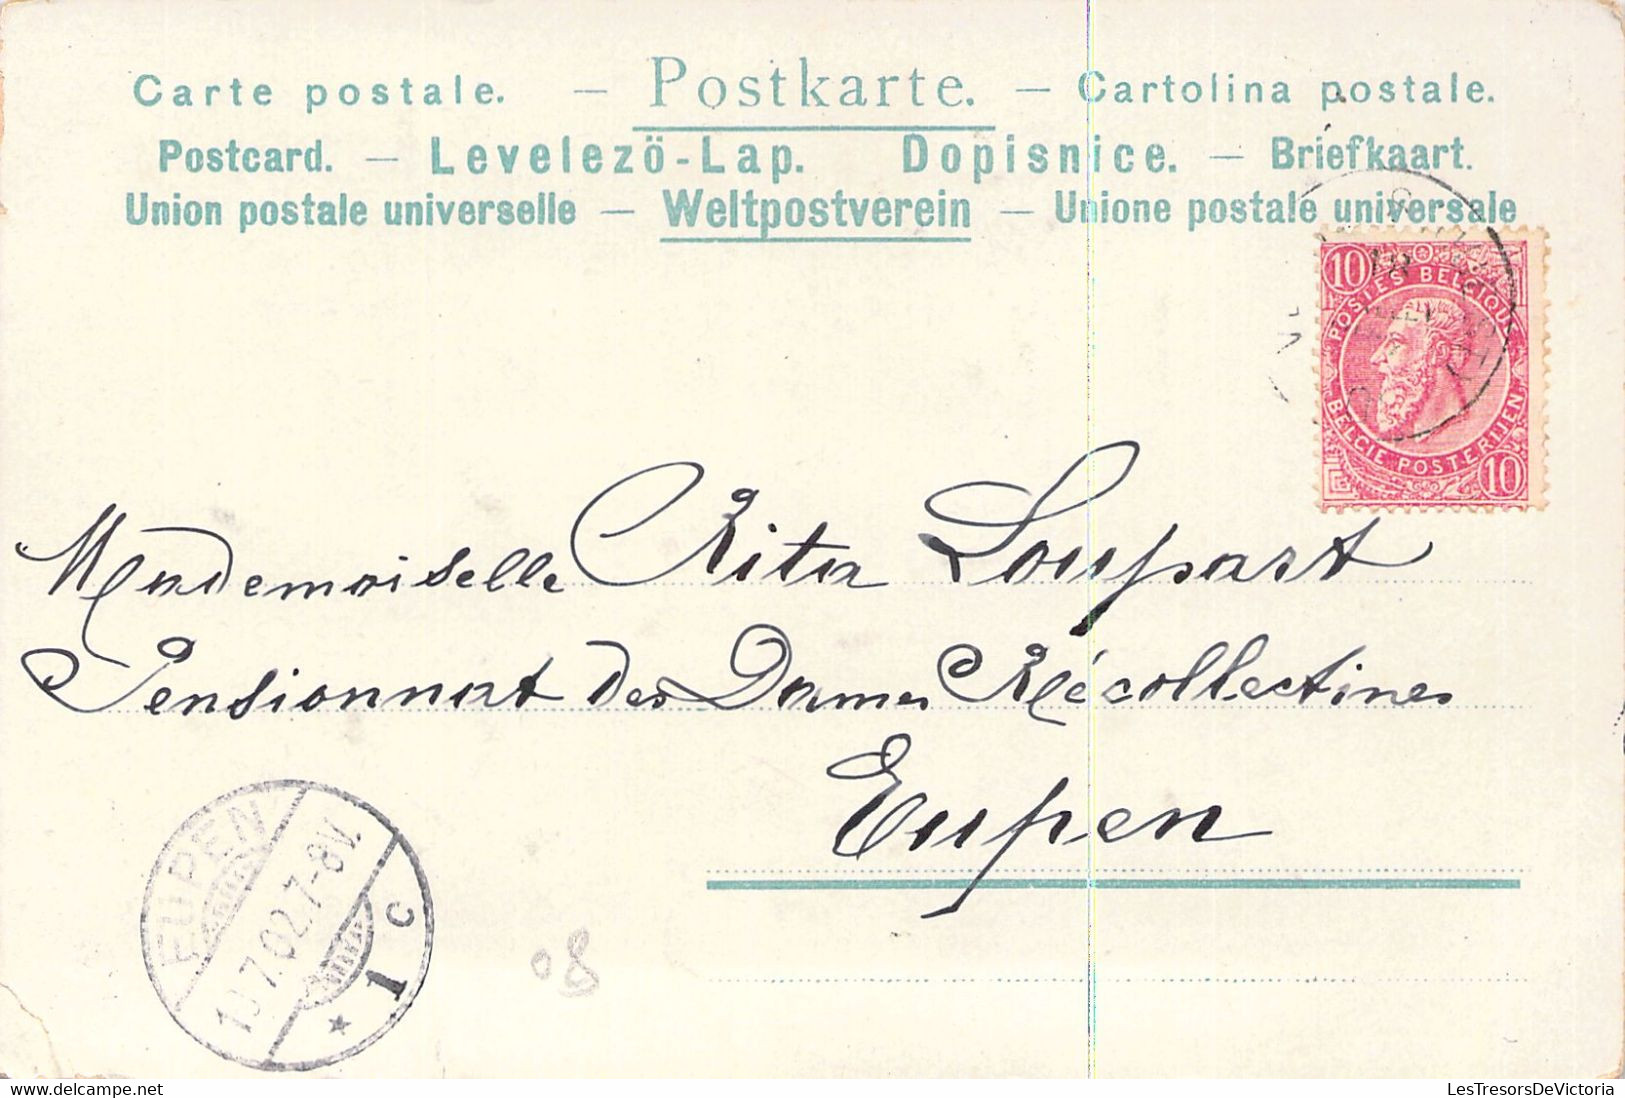 Carte postale. — Postkarte. — Cartolina postale.
Postcard. — Levelezö-Lap. Dopisnice. — Briefkaart.
Union postale universelle — Weltpostverein — Unione postale universale
10
POSTES BELGIQUE
BELGIE POSTERIJEN
10
Mademoiselle Rita Loupart
Pensionnat des Dames Récollectines
Eupen
EUPEN
7.02.7-8V.
* 1 c
08
www.delcampe.net
LesTresorsDeVictoria